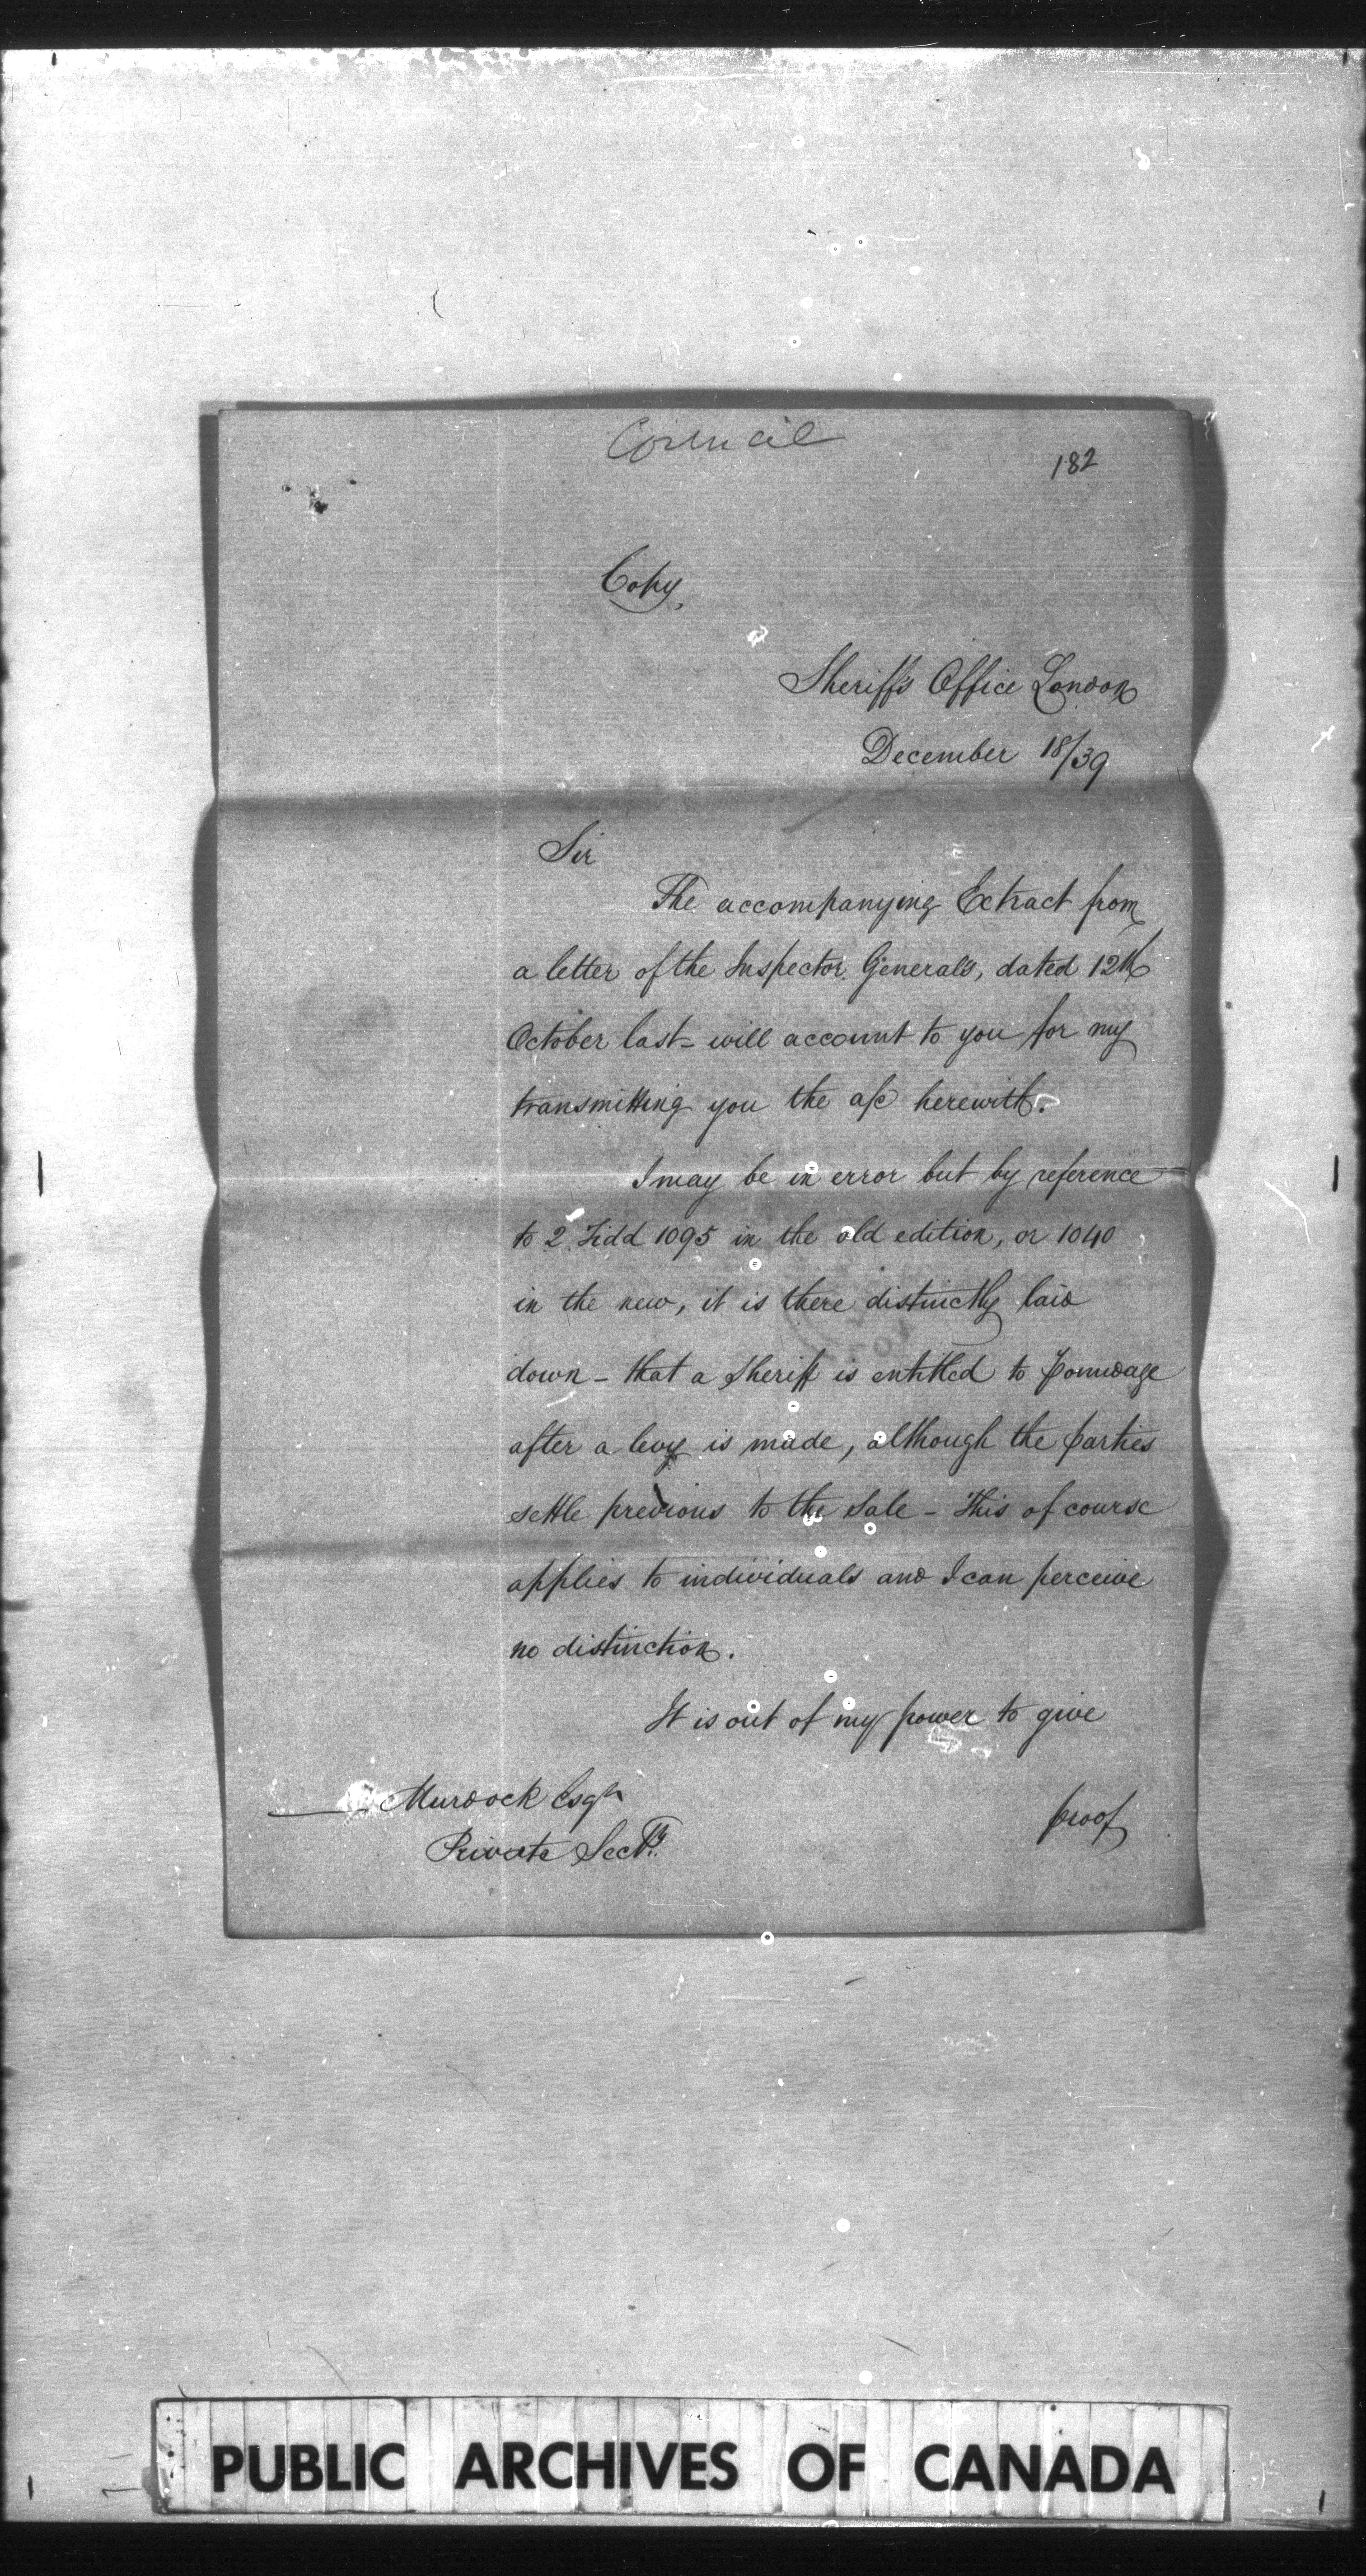 Council
182
Copy,
Sheriff's Office London
December 18/39
Sir
The accompanying Extract from
a letter of the Inspector General's, dated 12th
October last - will account to you for my
transmitting you the a/c herewith.
I may be in error but by reference
to 2 Tidd 1095 in the old edition, or 1040
in the new, it is there distinctly laid
down - that a Sheriff is entitled to Poundage
after a levy is made, although the parties
settle previous to the Sale - This of course
applies to individuals and I can perceive
no distinction.
It is out of my power to give
Murdock Esqr
proof
Private Secty.
PUBLIC ARCHIVES OF CANADA